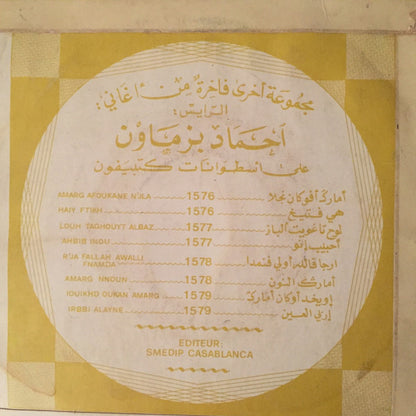 مجموعة أخرى فاخرة من أغاني:
الرايس:
احماد بزماون
على اسطوانات كتبيفون
AMARG AFOUKANE N'JLA 1576 أمارگ أفوكان نجلا
HAIY FTIKH 1576 هي فتيخ
LOUH TAGHOUYT ALBAZ 1577 لوح تاغويت الباز
AHBIB INOU 1577 أحبيب إنو
RJA FALLAH AWALLI FNAMDA 1578 ارجا فالله أولي فنمدا
AMARG NNOUN 1578 أمارگ النون
IOUIKHD OUKAN AMARG 1579 إويخد أوكان أمارگ
IRBBI ALAYNE 1579 إربي العين
EDITEUR:
SMEDIP CASABLANCA